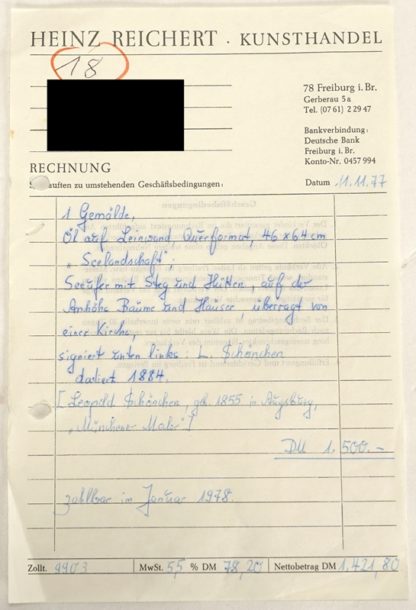 HEINZ REICHERT · KUNSTHANDEL
18
78 Freiburg i. Br.
Gerberau 5a
Tel. (07 61) 2 29 47
Bankverbindung:
Deutsche Bank
Freiburg i. Br.
Konto-Nr. 0457994
RECHNUNG
kauften zu umstehenden Geschäftsbedingungen:
Datum 11.11.77
1 Gemälde,
Öl auf Leinwand Querformat, 46 x 64 cm
"Seelandschaft";
Seeufer mit Steg und Hütten, auf der
Anhöhe Bäume und Häuser überragt von
einer Kirche,
signiert unten links: L. Schönchen
datiert 1884.
[Leopold Schönchen, geb. 1855 in Augsburg,
"Münchner Maler"]
DM 1.500.-
zahlbar im Januar 1978.
Zollt. 9903 MwSt. 5,5 % DM 78,20 Nettobetrag DM 1.421,80